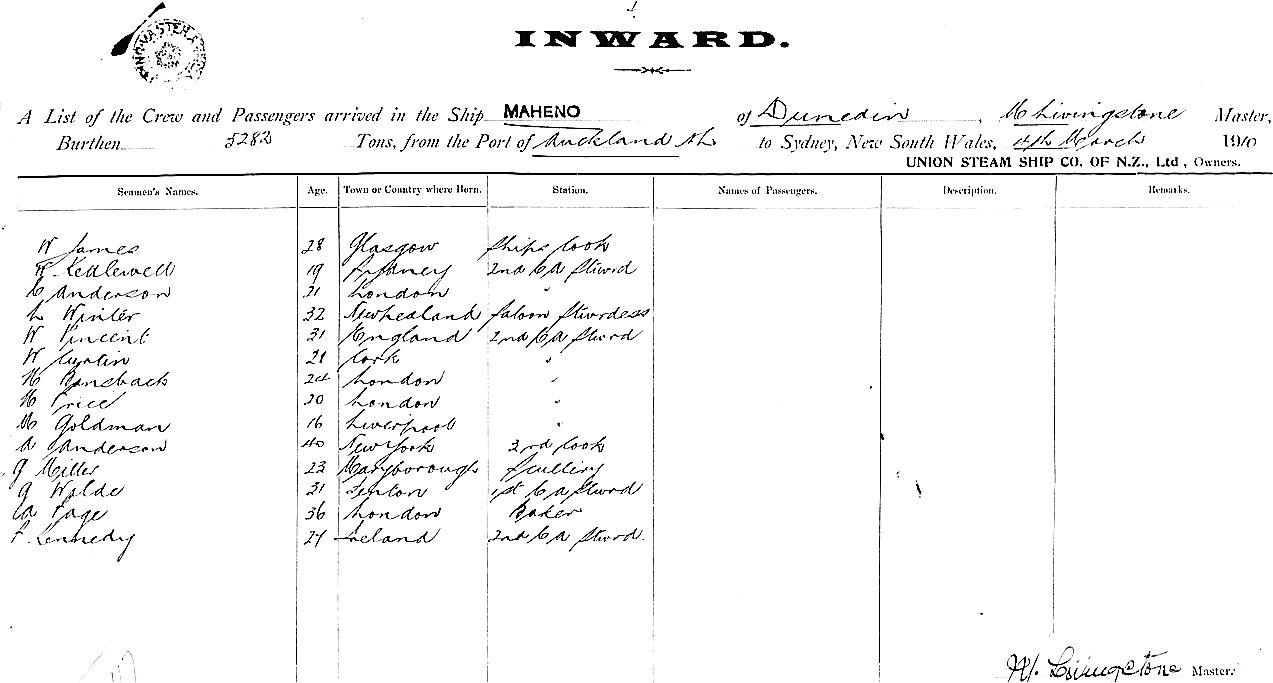 INWARD.
A List of the Crew and Passengers arrived in the Ship MAHENO of Dunedin, Livingstone Master,
Burthen 5282 Tons, from the Port of Auckland to Sydney, New South Wales, 4th March 1910
UNION STEAM SHIP CO. OF N.Z., Ltd, Owners.
Seamen's Names. Age. Town or Country where Born. Station. Names of Passengers. Description. Remarks.
W James 28 Glasgow Ships Cook
W Kedlewell 19 Sydney 2nd Stwrd
C Anderson 21 London "
L Winter 32 New Zealand Saloon Stwrdess
W Vincent 31 England 2nd Stwrd
W Curtin 21 Cork "
H 24 London "
H Price 20 London "
M Goldman 16 Liverpool "
A Anderson 40 New York 3rd Cook
G Miller 23 Maryborough Scullery
G Wylde 31 1st Stwrd
Page 36 London Baker
F Kennedy Ireland 2nd Stwrd.
Livingstone Master.